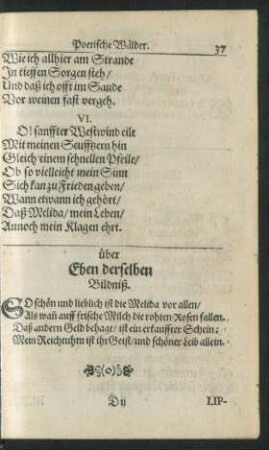 Poetische Wälder. 37
Wie ich allhier am Strande
In tieffen Sorgen steh/
Und daß ich offt im Sande
Vor weinen fast vergeh.
VI.
O! sanffter Westwind eile
Mit meinen Seufftzern hin
Gleich einem schnellen Pfeile/
Ob so vielleicht mein Sinn
Sich kan zu Frieden geben/
Wann etwann ich gehört/
Daß Melida/ mein Leben/
Annoch mein Klagen ehrt.
über
Eben derselben
Bildniß.
SO schön und lieblich ist die Melida vor allen/
Als wañ auff frische Milch die rohten Rosen fallen.
Daß andern Geld behage/ ist ein erkauffter Schein:
Mein Reichtuhm ist ihr Geist/ und schöner Leib allein.
D ij LIP-